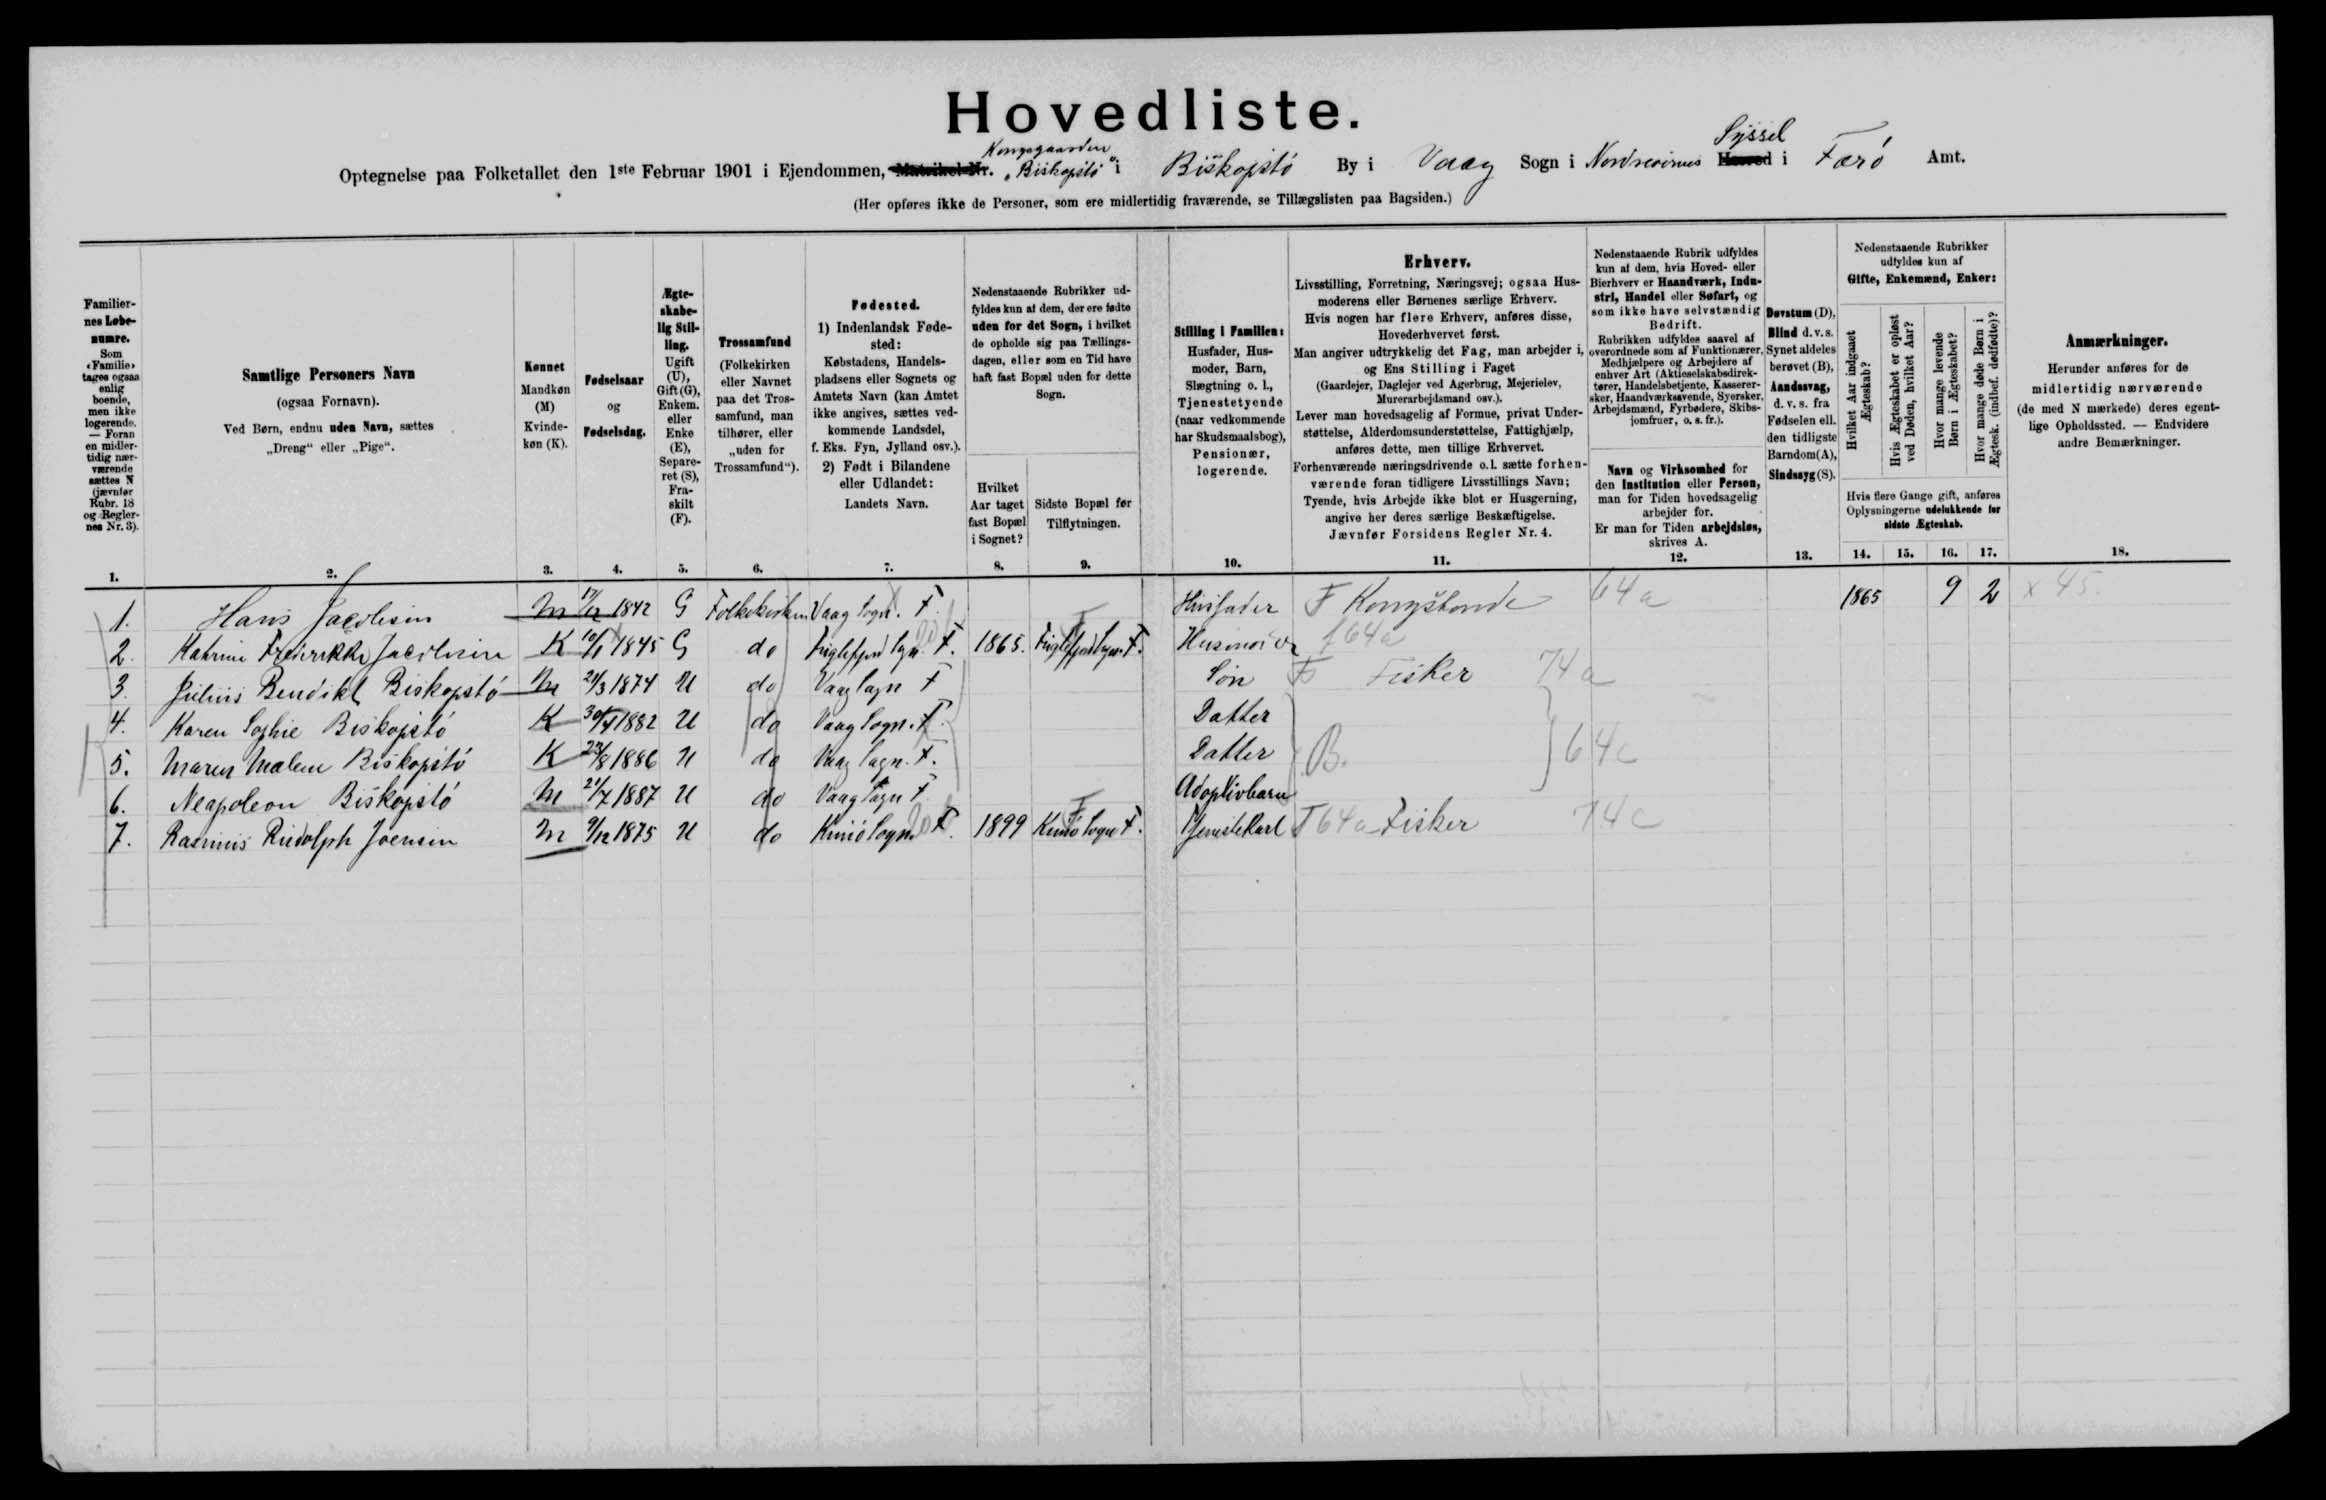 Hovedliste.
Kongsgaarden
Syssel
Optegnelse paa Folketallet den 1ste Februar 1901 i Ejendommen, Matrikel-Nr. „Biskopstó“ i Biskopstó By i Vaag Sogn i Herred i Færó Amt.
(Her opføres ikke de Personer, som ere midlertidig fraværende, se Tillægslisten paa Bagsiden.)
Familiernes Løbenumre.
Som «Familie» tages ogsaa enlig boende, men ikke logerende. — Foran en midlertidig nærværende sættes N (jævnfør Rubr. 18 og Reglernes Nr. 3).
1.
Samtlige Personers Navn
(ogsaa Fornavn).
Ved Børn, endnu uden Navn, sættes
„Dreng“ eller „Pige“.
2.
Kønnet
Mandkøn
(M)
Kvinde-
køn (K).
3.
Fødselsaar
og
Fødselsdag.
4.
Ægte-
skabe-
lig Stil-
ling.
Ugift
(U),
Gift (G),
Enkem.
eller
Enke
(E),
Separe-
ret (S),
Fra-
skilt
(F).
5.
Trossamfund
(Folkekirken
eller Navnet
paa det Tros-
samfund, man
tilhører, eller
„uden for
Trossamfund“).
6.
Fødested.
1) Indenlandsk Føde-
sted:
Købstadens, Handels-
pladsens eller Sognets og
Amtets Navn (kan Amtet
ikke angives, sættes ved-
kommende Landsdel,
f. Eks. Fyn, Jylland osv.).
2) Født i Bilandene
eller Udlandet:
Landets Navn.
7.
Nedenstaaende Rubrikker ud-
fyldes kun af dem, der ere fødte
uden for det Sogn, i hvilket
de opholde sig paa Tællings-
dagen, eller som en Tid have
haft fast Bopæl uden for dette
Sogn.
Hvilket
Aar taget
fast Bopæl
i Sognet?
8.
Sidste Bopæl før
Tilflytningen.
9.
Stilling i Familien:
Husfader, Hus-
moder, Barn,
Slægtning o. l.,
Tjenestetyende
(naar vedkommende
har Skudsmaalsbog),
Pensionær,
logerende.
10.
Erhverv.
Livsstilling, Forretning, Næringsvej; ogsaa Hus-
moderens eller Børnenes særlige Erhverv.
Hvis nogen har flere Erhverv, anføres disse,
Hovederhvervet først.
Man angiver udtrykkelig det Fag, man arbejder i,
og Ens Stilling i Faget
(Gaardejer, Daglejer ved Agerbrug, Mejerielev,
Murerarbejdsmand osv.).
Lever man hovedsagelig af Formue, privat Under-
støttelse, Alderdomsunderstøttelse, Fattighjælp,
anføres dette, men tillige Erhvervet.
Forhenværende næringsdrivende o. l. sætte forhen-
værende foran tidligere Livsstillings Navn;
Tyende, hvis Arbejde ikke blot er Husgerning,
angive her deres særlige Beskæftigelse.
Jævnfør Forsidens Regler Nr. 4.
11.
Nedenstaaende Rubrik udfyldes
kun af dem, hvis Hoved- eller
Bierhverv er Haandværk, Indu-
stri, Handel eller Søfart, og
som ikke have selvstændig
Bedrift.
Rubrikken udfyldes saavel af
overordnede som af Funktionærer,
Medhjælpere og Arbejdere af
enhver Art (Aktieselskabsdirek-
tører, Handelsbetjente, Kasserer-
sker, Haandværkssvende, Syersker,
Arbejdsmænd, Fyrbødere, Skibs-
jomfruer, o. s. fr.).
Navn og Virksomhed for
den Institution eller Person,
man for Tiden hovedsagelig
arbejder for.
Er man for Tiden arbejdsløs,
skrives A.
12.
Døvstum (D),
Blind d. v. s.
Synet aldeles
berøvet (B),
Aandssvag,
d. v. s. fra
Fødselen ell.
den tidligste
Barndom (A),
Sindssyg (S).
13.
Nedenstaaende Rubrikker
udfyldes kun af
Gifte, Enkemænd, Enker:
Hvilket Aar indgaaet
Ægteskab?
Hvis Ægteskabet er opløst
ved Døden, hvilket Aar?
Hvor mange levende
Børn i Ægteskabet?
Hvor mange døde Børn i
Ægtesk. (indbef. dødfødte)?
Hvis flere Gange gift, anføres
Oplysningerne udelukkende for
sidste Ægteskab.
14. 15. 16. 17.
Anmærkninger.
Herunder anføres for de
midlertidig nærværende
(de med N mærkede) deres egent-
lige Opholdssted. — Endvidere
andre Bemærkninger.
18.
1. Hans Jacobsen M 17/12 1842 G Folkekirken Vaag Sogn. F. Husfader F Kongsbonde 64a 1865 9 2 x 45.
2. Katrine Frederikke Jacobsen K 10/1 1845 G do Fuglefjord Sogn F. 1865. Fuglefjord Sogn F. Husmoder 64a
3. Julius Bendikt Biskopstó M 21/3 1874 U do Vaag Sogn F Søn F Fisker 74a
4. Karen Sophie Biskopstó K 1882 U do Vaag Sogn. F. Datter
5. Maren Malene Biskopstó K 1886 U do Vaag Sogn. F. Datter B. 64c
6. Neapoleon Biskopstó M 21/7 1887 U do Vaag Sogn F Adoptivbarn
7. Rasmus Rudolph Joensen M 9/12 1875 U do Kunó Sogn F. 1899 Kunó Sogn F. Tjenestekarl T 64a Fisker 74c